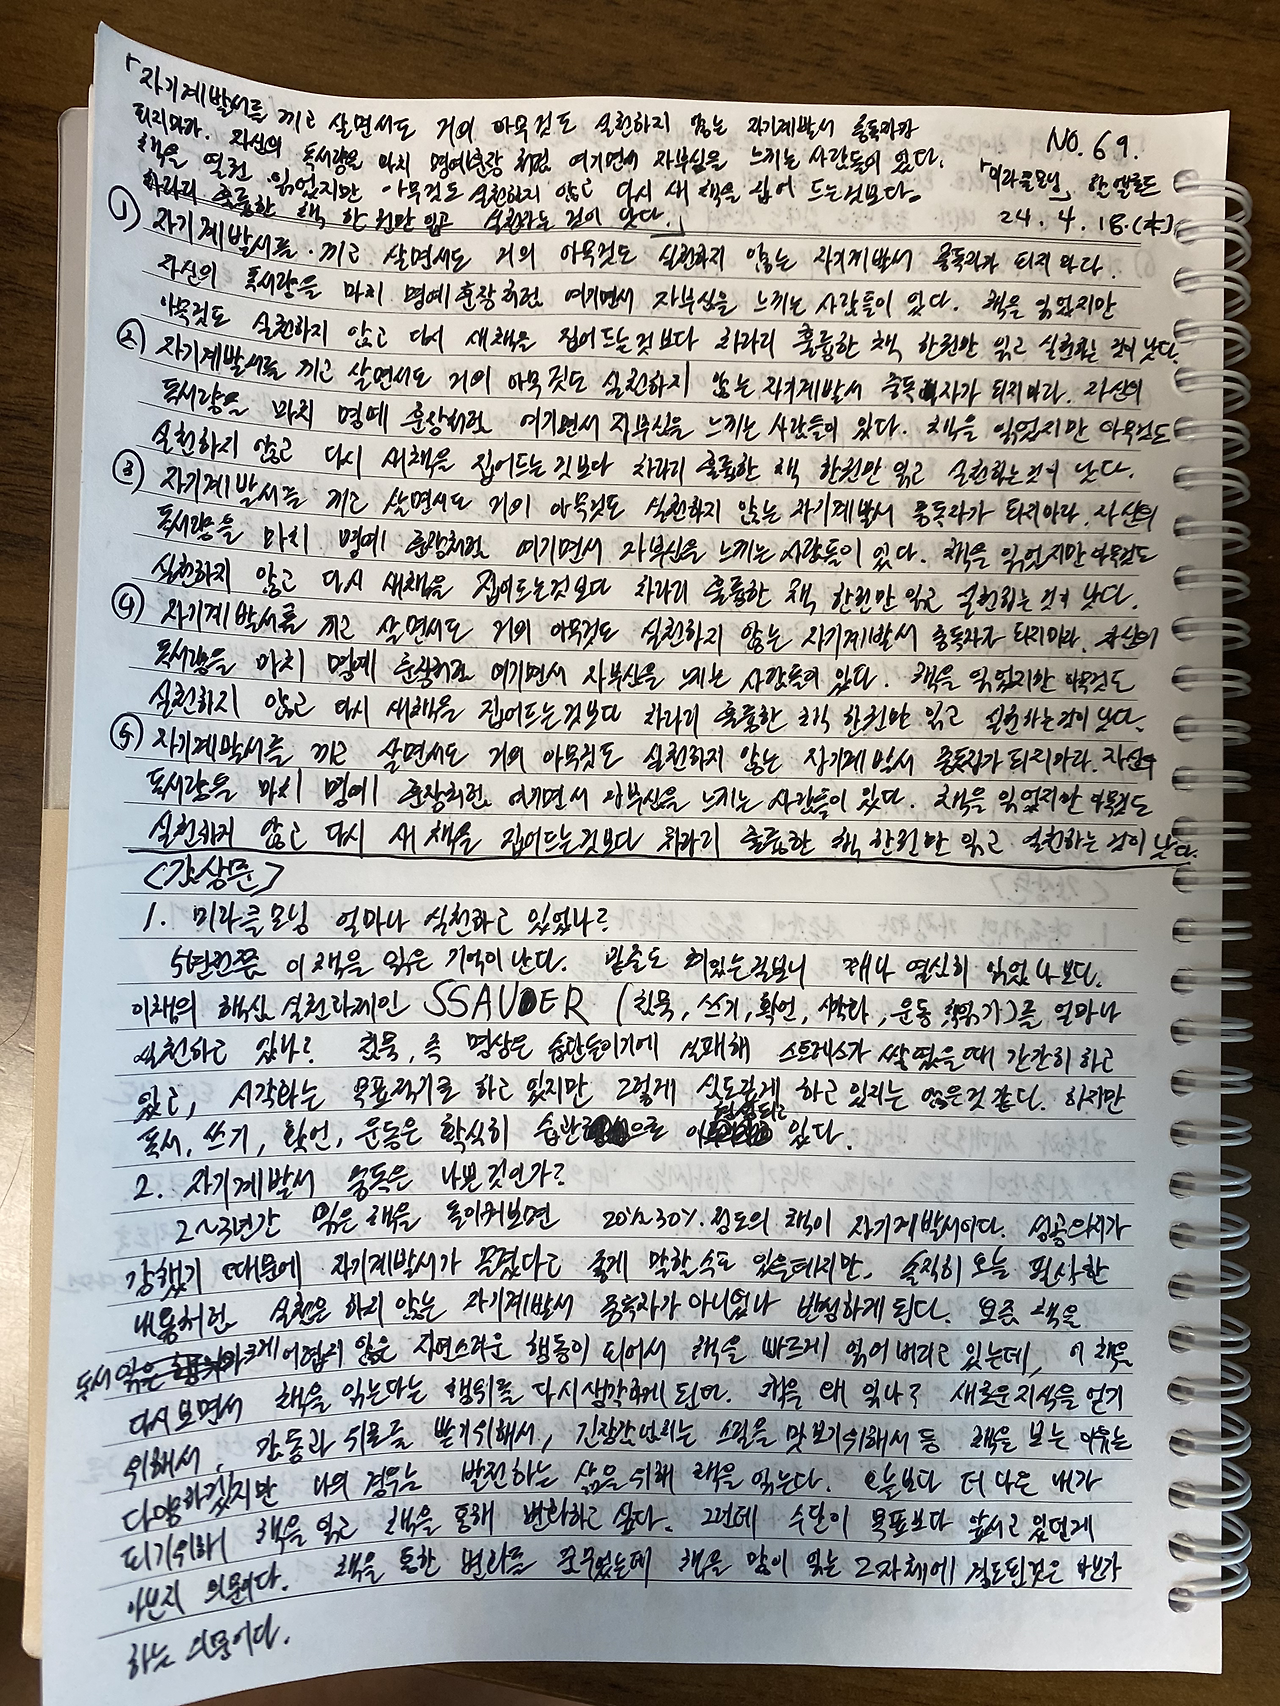 「자기계발서를 끼고 살면서도 거의 아무것도 실천하지 않는 자기계발서 중독자가
되지마라. 자신의 독서량을 마치 명예훈장 처럼 여기면서 자부심을 느끼는 사람들이 있다.
책을 열권 읽었지만 아무것도 실천하지 않고 다시 새 책을 집어 드는것보다.
차라리 훌륭한 책 한 권만 읽고 실천하는 것이 낫다.」
NO. 69.
「미라클모닝」 할엘로드
24. 4. 18. (木)
① 자기계발서를 끼고 살면서도 거의 아무것도 실천하지 않는 자기계발서 중독자가 되지 마라.
자신의 독서량을 마치 명예훈장처럼 여기면서 자부심을 느끼는 사람들이 있다. 책을 읽었지만
아무것도 실천하지 않고 다시 새책을 집어드는것 보다 차라리 훌륭한 책 한권만 읽고 실천하는 것이 낫다.
② 자기계발서를 끼고 살면서도 거의 아무것도 실천하지 않는 자기계발서 중독자가 되지마라. 자신의
독서량을 마치 명예 훈장처럼 여기면서 자부심을 느끼는 사람들이 있다. 책을 읽었지만 아무것도
실천하지 않고 다시 새책을 집어드는것보다 차라리 훌륭한 책 한권만 읽고 실천하는것이 낫다.
③ 자기계발서를 끼고 살면서도 거의 아무것도 실천하지 않는 자기계발서 중독자가 되지마라. 자신의
독서량을 마치 명예 훈장처럼 여기면서 자부심을 느끼는 사람들이 있다. 책을 읽었지만 아무것도
실천하지 않고 다시 새책을 집어드는것보다 차라리 훌륭한 책 한권만 읽고 실천하는 것이 낫다.
④ 자기계발서를 끼고 살면서도 거의 아무것도 실천하지 않는 자기계발서 중독자가 되지마라. 자신의
독서량을 마치 명예 훈장처럼 여기면서 자부심을 느끼는 사람들이 있다. 책을 읽었지만 아무것도
실천하지 않고 다시 새책을 집어드는것보다 차라리 훌륭한 책 한권만 읽고 실천하는것이 낫다.
⑤ 자기계발서를 끼고 살면서도 거의 아무것도 실천하지 않는 자기계발서 중독자가 되지마라. 자신의
독서량을 마치 명예 훈장처럼 여기면서 자부심을 느끼는 사람들이 있다. 책을 읽었지만 아무것도
실천하지 않고 다시 새 책을 집어드는것보다 차라리 훌륭한 책 한권만 읽고 실천하는 것이 낫다.
<감상문>
1. 미라클모닝 얼마나 실천하고 있었나?
5년전쯤 이 책을 읽은 기억이 난다. 밑줄도 쳐있는걸보니 꽤나 열심히 읽었나보다.
이책의 핵심 실천과제인 SSAVER (침묵, 쓰기, 확언, 시각화, 운동, 책읽기)를 얼마나
실천하고 있나? 침묵, 즉 명상은 습관들이기에 실패해 스트레스가 쌓였을때 간간히 하고
있고, 시각화는 목표적기로 하고 있지만 그렇게 심도깊게 하고 있지는 않은것 같다. 하지만
독서, 쓰기, 확언, 운동은 확실히 습관으로 형성되고 있다.
2. 자기계발서 중독은 나쁜것인가?
2~3년간 읽은 책을 돌이켜보면 20%~30% 정도의 책이 자기계발서이다. 성공의지가
강했기 때문에 자기계발서가 끌렸다고 좋게 말할수도 있을테지만, 솔직히 오늘 필사한
내용처럼 실천은 하지 않는 자기계발서 중독자가 아니었나 반성하게 된다. 요즘 책을
독서 크게 어렵지 않은 자연스러운 행동이 되어서 책을 빠르게 읽어 버리고 있는데, 이 책을
다시 보면서 책을 읽는다는 행위를 다시생각하게 된다. 책을 왜 읽나? 새로운 지식을 얻기
위해서, 감동과 위로를 받기위해서, 긴장감넘치는 스릴을 맛보기위해서 등 책을 보는 이유는
다양하겠지만 나의 경우는 발전하는 삶을 위해 책을 읽는다. 오늘보다 더 나은 내가
되기위해 책을 읽고 책을 통해 변화하고 싶다. 그런데 수단이 목표보다 앞서고 있던게
아닌지 의문이다. 책을 통한 변화를 꿈꾸었는데 책을 많이 읽는 그 자체에 경도된것은 아닌가
하는 의문이다.